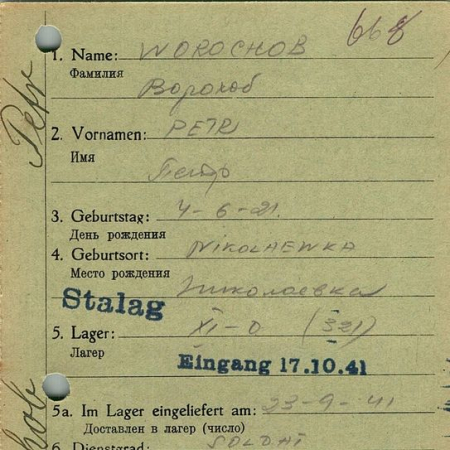 668
1. Name: WOROCHOB
Фамилия
Ворохоб
2. Vornamen: PETR
Имя
Петр
3. Geburtstag: 4-6-21.
День рождения
4. Geburtsort: NIKOLAEWKA
Место рождения
Николаевка
Stalag
5. Lager: XI-D (321)
Лагер
Eingang 17.10.41
5a. Im Lager eingeliefert am: 23-9-41
Доставлен в лагер (число)
6. Dienstgrad: SOLDAT
Petr